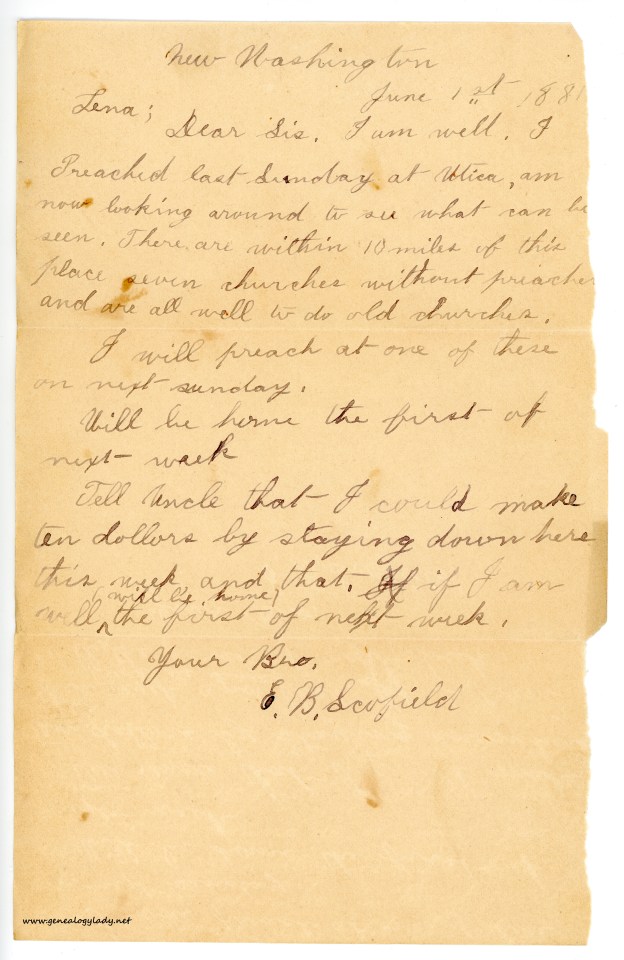 New Washington
June 1st 1881
Lena;
Dear Sis. I am well. I
Preached last Sunday at Utica, am
now looking around to see what can be
seen. There are within 10 miles of this
place seven churches without preacher
and are all well to do old churches.
I will preach at one of these
on next sunday.
Will be home the first of
next week
Tell Uncle that I could make
ten dollors by staying down here
this week, and that. If if I am
will be home
well, the first of next week.
Your Bro.
E. B. Scofield
www.genealogylady.net